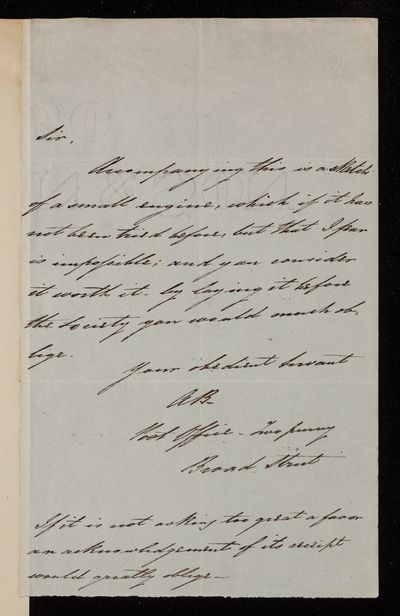 Sir,
Accompanying this is a sketch
of a small engine, which if it has
not been tried before, but that I fear
is impossible; and you consider
it worth it - by laying it before
the Society you would much ob
lige.
Your obedient Servant
AB-
Post Office - Twopenny
Broad Street
If it is not asking too great a favor
an acknowledgement of its receipt
would greatly oblige -